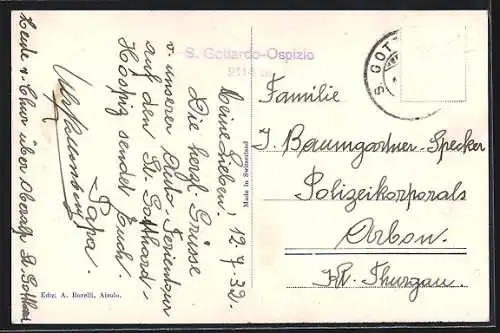 S. Gottardo-Ospizio
2114 m
S. GOT
Meine Lieben! 12.7.32.
Die herzl. Grüsse
v. unserer Auto-Ferientour
auf den St. Gotthard-
Hospiz sendet Euch
Papa.
Heute v. Chur über Oberalp St. Gotthard
Made in Switzerland
Familie
J. Baumgartner-Specker
Polizeikorporals
Arbon.
Kt. Thurgau.
Ediz. A. Borelli, Airolo.